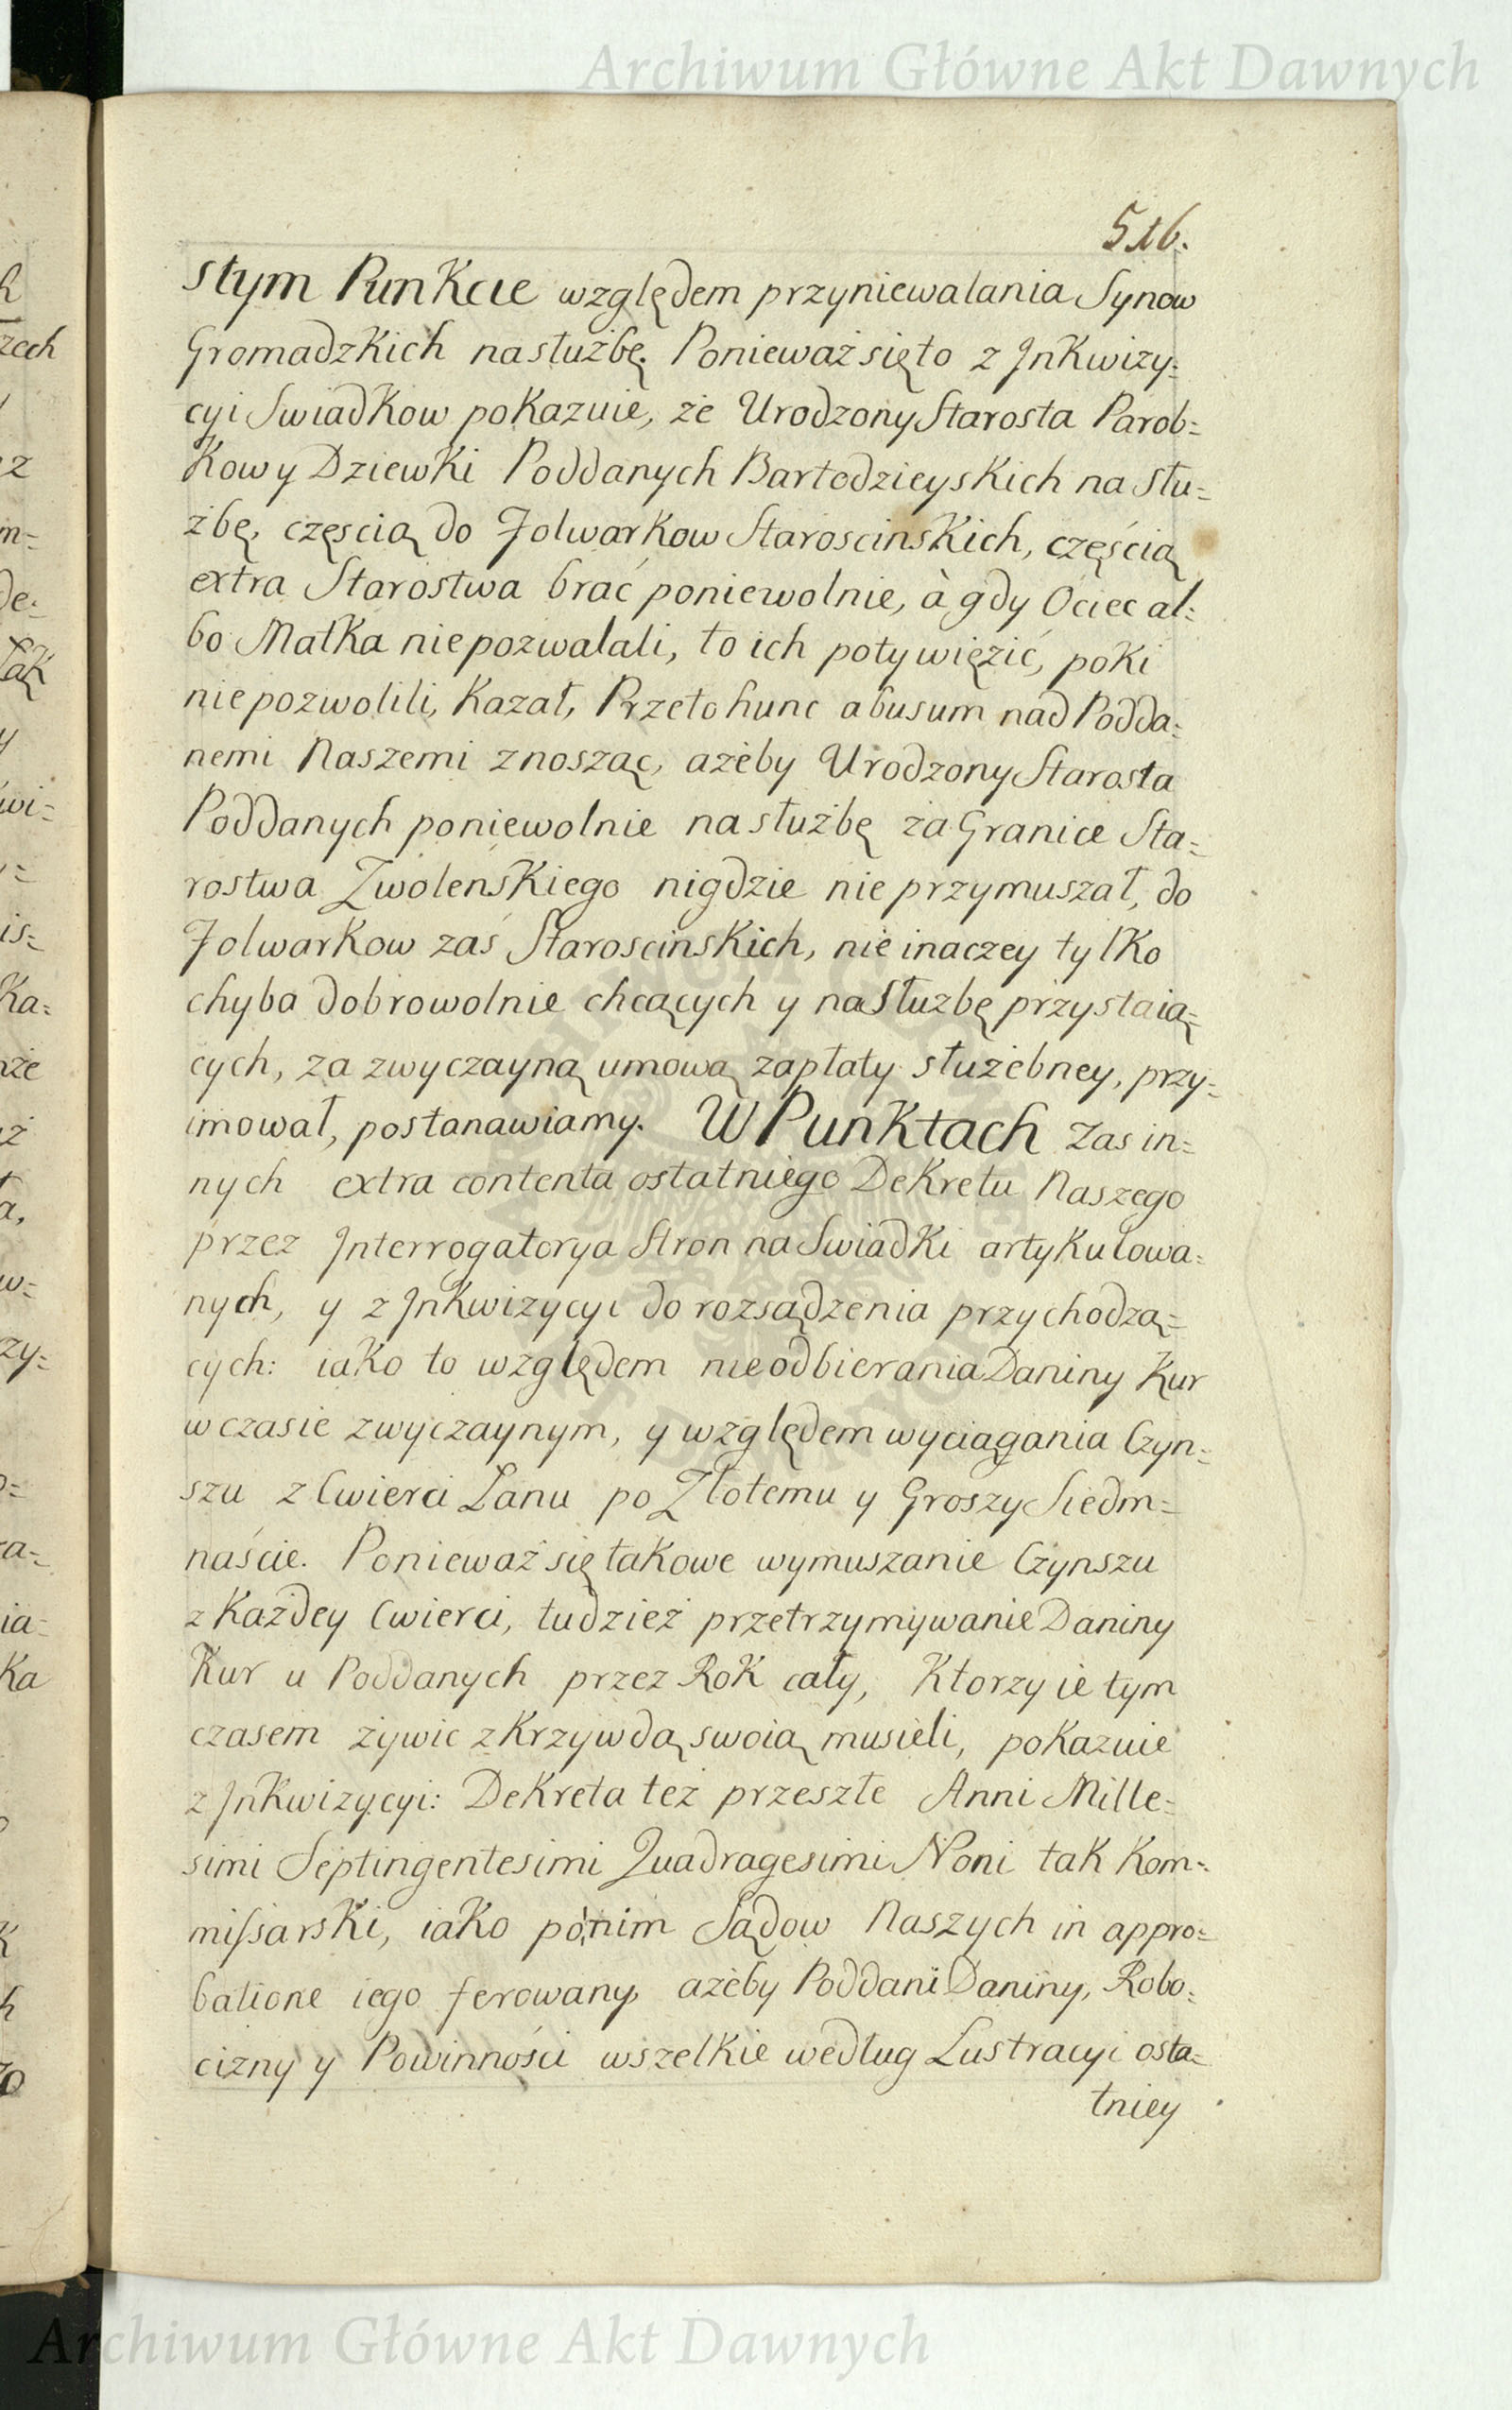 Archiwum Główne Akt Dawnych
516.
stym Punkcie względem przyniewalania Synow
Gromadzkich na służbę. Ponieważ się to z Jnkwizy=
cyi Swiadkow pokazuie, że Urodzony Starosta Parob=
kow y Dziewki Poddanych Bartodzieyskich na słu=
żbę, częscią do Folwarkow Staroscinskich, częścią
extra Starostwa brać poniewolnie, à gdy Ociec al=
bo Matka nie pozwalali, to ich poty więzić, poki
nie pozwolili, kazał, Przeto hunc abusum nad Podda=
nemi Naszemi znosząc, ażeby Urodzony Starosta
Poddanych poniewolnie na służbę za Granice Sta=
rostwa Zwoleńskiego nigdzie nie przymuszał, do
Folwarkow zaś Staroscinskich, nie inaczey tylko
chyba dobrowolnie chcących y na służbę przystaią=
cych, za zwyczayną umową zapłaty służebney, przy=
imował, postanawiamy. W Punktach zas in=
nych extra contenta ostatniego Dekretu Naszego
przez Interrogatorya Stron na Swiadki artykułowa=
nych, y z Jnkwizycyi do rozsądzenia przychodzą=
cych: iako to względem nieodbierania Daniny Kur
w czasie zwyczaynym, y względem wyciągania Czyn=
szu z Cwierci Łanu po Złotemu y Groszy Siedm=
naście. Ponieważ się takowe wymuszanie Czynszu
z każdey Cwierci, tudzież przetrzymywanie Daniny
Kur u Poddanych przez Rok cały, ktorzy ie tym
czasem żywic z krzywdą swoią musieli, pokazuie
z Jnkwizycyi: Dekreta też przeszłe Anni Mille=
simi Septingentesimi Quadragesimi Noni tak Kom=
miſsarski, iako po nim Sądow Naszych in appro=
batione iego ferowany, ażeby Poddani Daniny, Robo=
cizny y Powinności wszelkie według Lustracyi osta=
tniey
Archiwum Główne Akt Dawnych